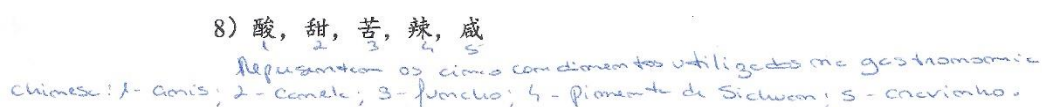 8) 酸, 甜, 苦, 辣, 咸
1 2 3 4 5
Representam os cinco condimentos utilizados na gastronomia
chinesa: 1- anis; 2- canela; 3- funcho; 4- Pimenta de Sichuan; 5- cravinho.